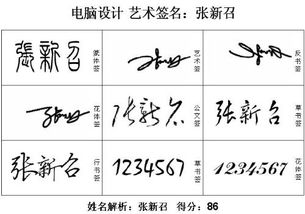 电脑设计 艺术签名：张新召
張新召 篆体签 艺术签 反书签
花体签 张新召 公文签 张新召 草书签
张新召 行书签 1234567 草书签 1234567 花体签
姓名解析：张新召 得分：86